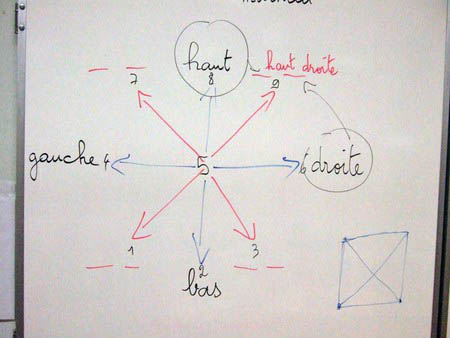 haut
haut droite
7
8
9
gauche 4
5
6 droite
1
2
3
bas